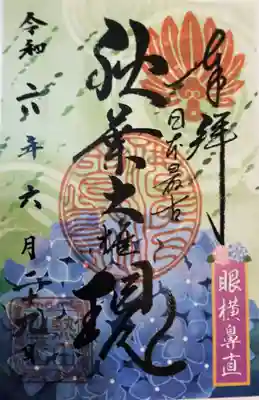 奉拝
日本最古
秋葉大権現
令和六年六月二十九日
眼横鼻直